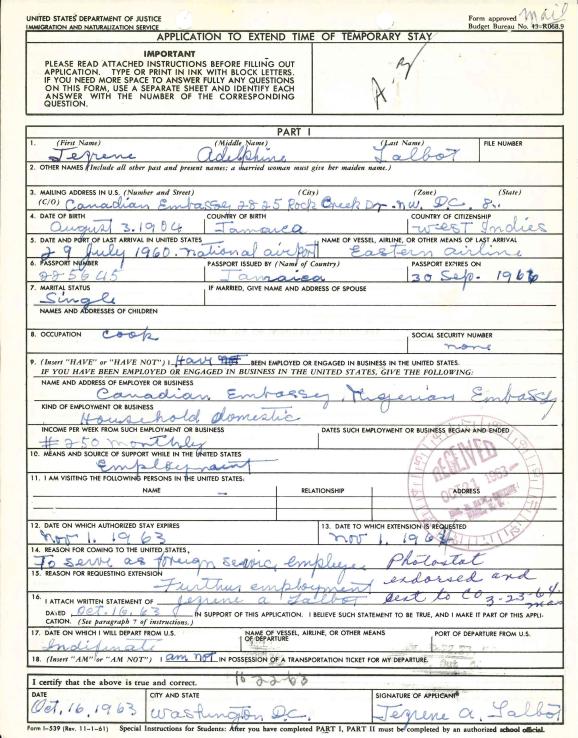 UNITED STATES DEPARTMENT OF JUSTICE
IMMIGRATION AND NATURALIZATION SERVICE
Form approved
Budget Bureau No. 43-R068.9
mail
APPLICATION TO EXTEND TIME OF TEMPORARY STAY
IMPORTANT
PLEASE READ ATTACHED INSTRUCTIONS BEFORE FILLING OUT
APPLICATION. TYPE OR PRINT IN INK WITH BLOCK LETTERS.
IF YOU NEED MORE SPACE TO ANSWER FULLY ANY QUESTIONS
ON THIS FORM, USE A SEPARATE SHEET AND IDENTIFY EACH
ANSWER WITH THE NUMBER OF THE CORRESPONDING
QUESTION.
PART I
1. (First Name) (Middle Name) (Last Name) FILE NUMBER
Jezrene Adelphine Talbot
2. OTHER NAMES (Include all other past and present names; a married woman must give her maiden name.)
3. MAILING ADDRESS IN U.S. (Number and Street) (City) (Zone) (State)
(C/O) Canadian Embassy 2825 Rock Creek Dr. N.W. D.C. 8.
4. DATE OF BIRTH COUNTRY OF BIRTH COUNTRY OF CITIZENSHIP
August 3. 1904 Jamaica West Indies
5. DATE AND PORT OF LAST ARRIVAL IN UNITED STATES NAME OF VESSEL, AIRLINE, OR OTHER MEANS OF LAST ARRIVAL
29 July 1960. national airport Eastern airline
6. PASSPORT NUMBER PASSPORT ISSUED BY (Name of Country) PASSPORT EXPIRES ON
225645 Jamaica 30 Sep. 1966
7. MARITAL STATUS IF MARRIED, GIVE NAME AND ADDRESS OF SPOUSE
Single
NAMES AND ADDRESSES OF CHILDREN
8. OCCUPATION Cook SOCIAL SECURITY NUMBER
none
9. (Insert "HAVE" or "HAVE NOT") I Have BEEN EMPLOYED OR ENGAGED IN BUSINESS IN THE UNITED STATES.
IF YOU HAVE BEEN EMPLOYED OR ENGAGED IN BUSINESS IN THE UNITED STATES, GIVE THE FOLLOWING:
NAME AND ADDRESS OF EMPLOYER OR BUSINESS
Canadian Embassy, Nigerian Embassy
KIND OF EMPLOYMENT OR BUSINESS
Household domestic
INCOME PER WEEK FROM SUCH EMPLOYMENT OR BUSINESS DATES SUCH EMPLOYMENT OR BUSINESS BEGAN AND ENDED
$250 monthly
10. MEANS AND SOURCE OF SUPPORT WHILE IN THE UNITED STATES
Employment
RECEIVED
OCT 21 1963
11. I AM VISITING THE FOLLOWING PERSONS IN THE UNITED STATES.
NAME RELATIONSHIP ADDRESS
12. DATE ON WHICH AUTHORIZED STAY EXPIRES 13. DATE TO WHICH EXTENSION IS REQUESTED
Nov 1. 1963 Nov 1. 1964
14. REASON FOR COMING TO THE UNITED STATES,
To serve as foreign service employee
15. REASON FOR REQUESTING EXTENSION
Further employment
Photostat
endorsed and
sent to CO 3-23-64
16. I ATTACH WRITTEN STATEMENT OF Jezrene a Talbot
DATED Oct. 16, 63 IN SUPPORT OF THIS APPLICATION. I BELIEVE SUCH STATEMENT TO BE TRUE, AND I MAKE IT PART OF THIS APPLI-
CATION. (See paragraph 7 of instructions.)
17. DATE ON WHICH I WILL DEPART FROM U.S. NAME OF VESSEL, AIRLINE, OR OTHER MEANS OF DEPARTURE PORT OF DEPARTURE FROM U.S.
Indifinate
18. (Insert "AM" or "AM NOT") I am not IN POSSESSION OF A TRANSPORTATION TICKET FOR MY DEPARTURE.
I certify that the above is true and correct.
DATE CITY AND STATE SIGNATURE OF APPLICANT
Oct, 16, 1963 Washington D.C. Jezrene a. Talbot
Form I-539 (Rev. 11-1-61) Special Instructions for Students: After you have completed PART I, PART II must be completed by an authorized school official.